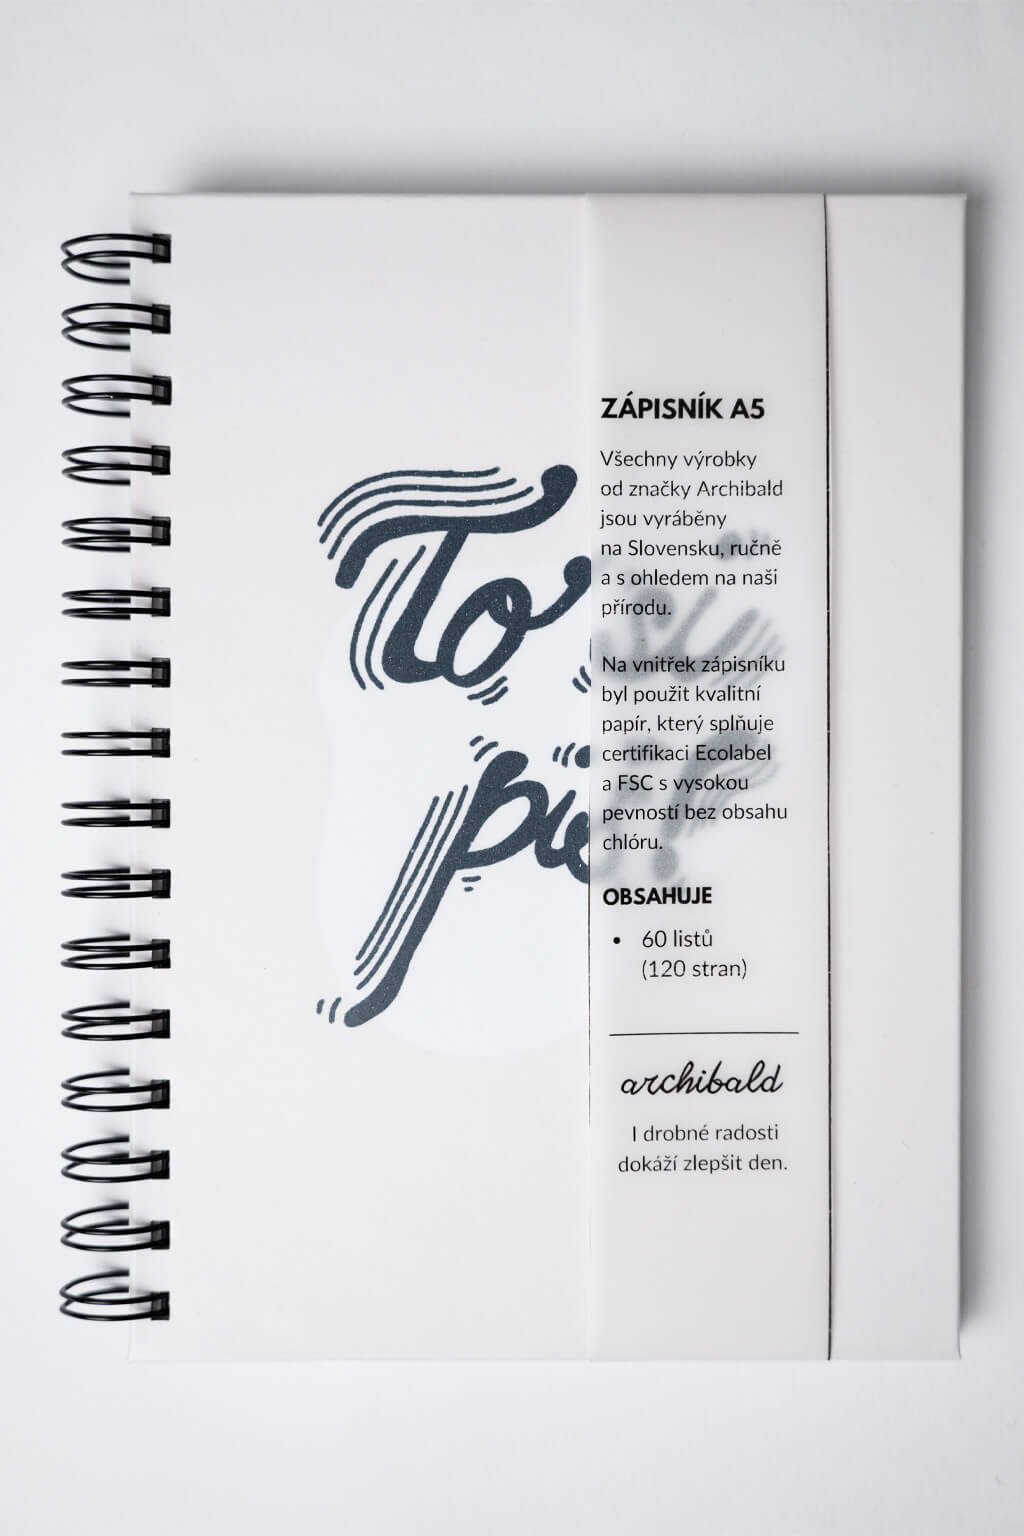 To
ZÁPISNÍK A5
Všechny výrobky
od značky Archibald
jsou vyráběny
na Slovensku, ručně
a s ohledem na naši
přírodu.
Na vnitřek zápisníku
byl použit kvalitní
papír, který splňuje
certifikaci Ecolabel
a FSC s vysokou
pevností bez obsahu
chlóru.
OBSAHUJE
• 60 listů
(120 stran)
archibald
I drobné radosti
dokáží zlepšit den.